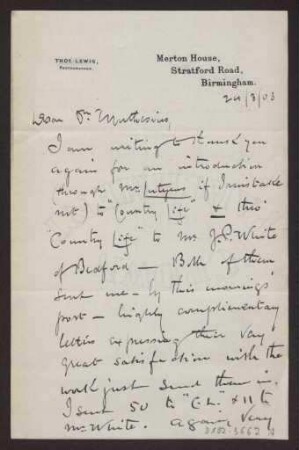 THOS. LEWIS,
PHOTOGRAPHER.
Merton House,
Stratford Road,
Birmingham.
24/3/03
Dear Dr. Muthesius,
I am writing to thank you
again for an introduction
through Mr. Lutyens if I mistake
not) to "Country Life" & thro'
"Country Life" to Mr. J.P. White
of Bedford — Both of them
sent me — by this mornings'
post — highly complimentary
letters expressing their very
great satisfaction with the
work just send them in.
I sent 50 to "C.L." & 11 to
Mr. White. Again very